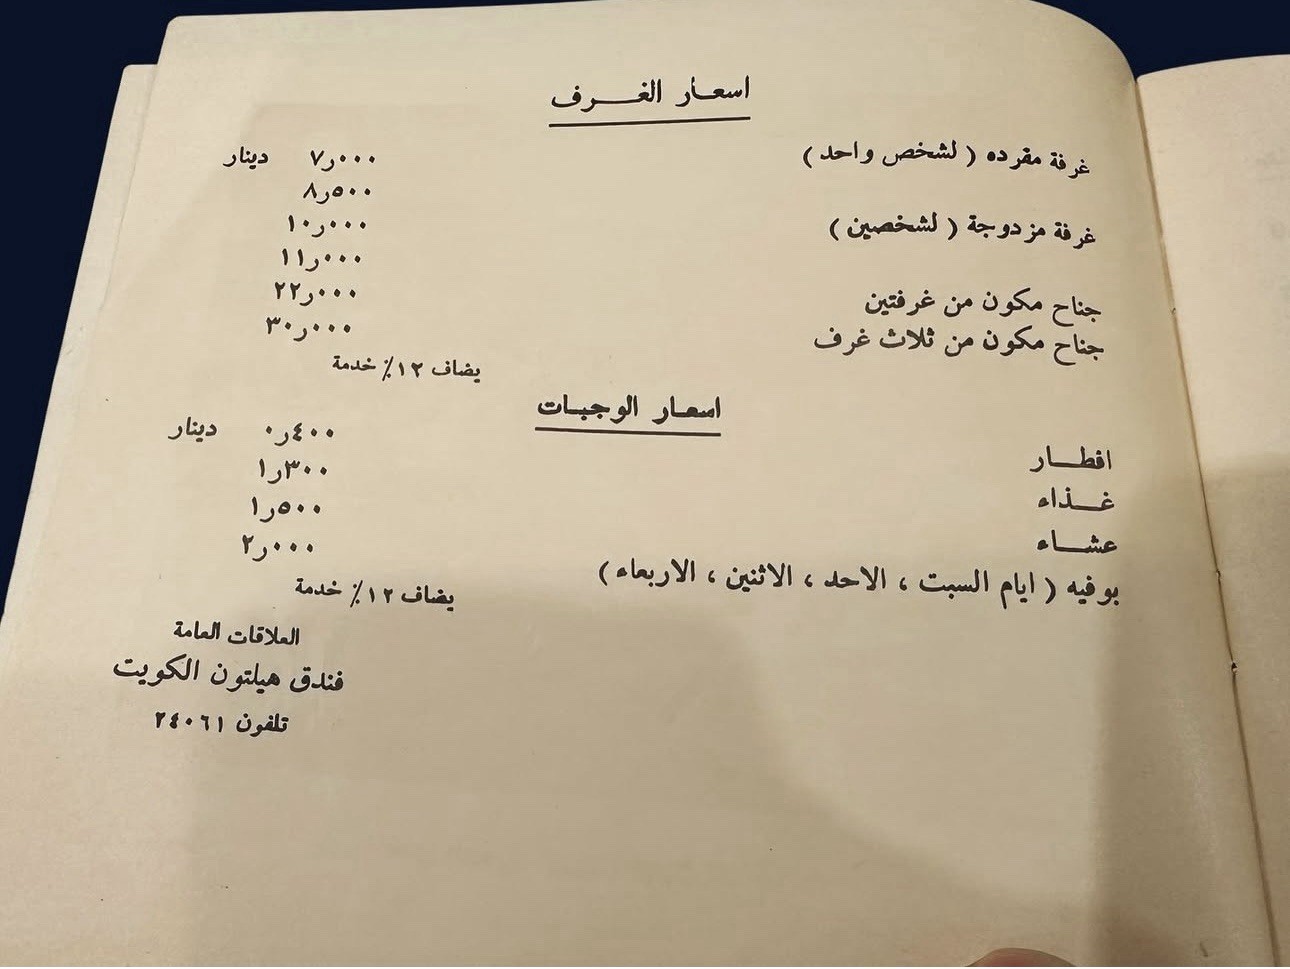 اسعار الغرف
غرفة مفرده ( لشخص واحد ) ٧ر٠٠٠ دينار
٨ر٥٠٠
غرفة مزدوجة ( لشخصين ) ١٠ر٠٠٠
١١ر٠٠٠
جناح مكون من غرفتين ٢٢ر٠٠٠
جناح مكون من ثلاث غرف ٣٠ر٠٠٠
يضاف ١٢٪ خدمة
اسعار الوجبات
افطار ٠ر٤٠٠ دينار
غذاء ١ر٣٠٠
عشاء ١ر٥٠٠
بوفيه ( ايام السبت ، الاحد ، الاثنين ، الاربعاء ) ٢ر٠٠٠
يضاف ١٢٪ خدمة
العلاقات العامة
فندق هيلتون الكويت
تلفون ٢٤٠٦١